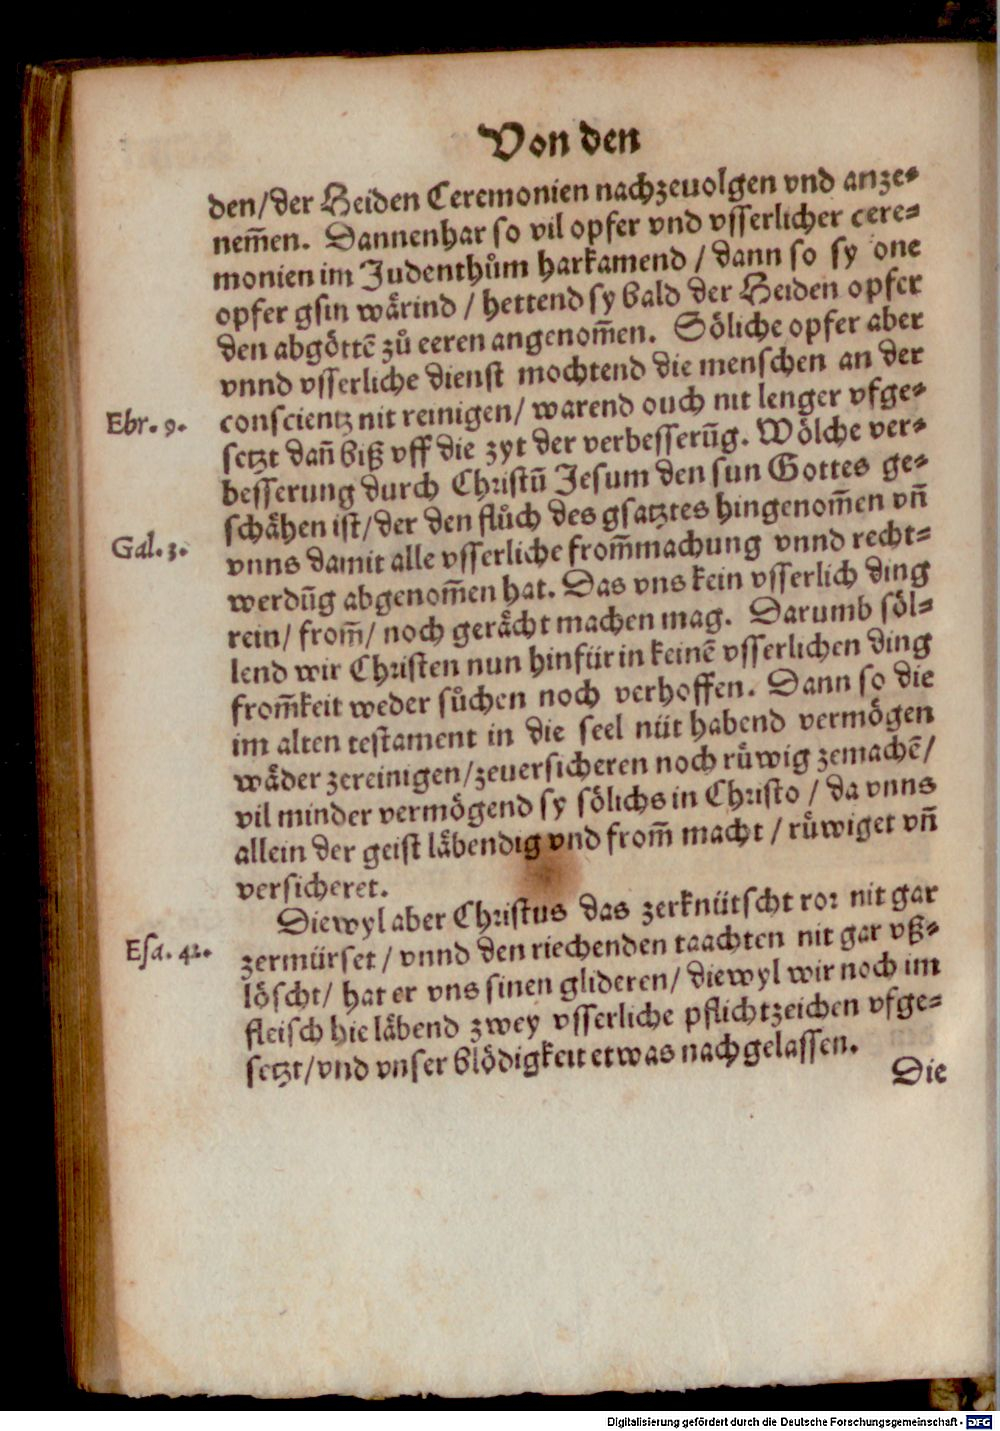 Von den
den/der Heiden Ceremonien nachzeuolgen vnd anze⸗
nem̃en. Dannenhar so vil opfer vnd vsserlicher cere⸗
monien im Judenthům harkamend / dann so sy one
opfer gsin wårind / hettend sy bald der Heiden opfer
den abgöttẽ zů eeren angenom̃en. Söliche opfer aber
vnnd vsserliche dienst mochtend die menschen an der
Ebr. 9. conscientz nit reinigen/ warend ouch nit lenger vfge⸗
setzt dañ biß vff die zyt der verbesserũg. Wölche ver⸗
besserung durch Christũ Jesum den sun Gottes ge⸗
schåhen ist/der den flůch des gsatztes hingenom̃en vñ
Gal. 3. vnns damit alle vsserliche from̃machung vnnd recht⸗
werdũg abgenom̃en hat. Das vns kein vsserlich ding
rein/ from̃/ noch geråcht machen mag. Darumb söl⸗
lend wir Christen nun hinfür in keinẽ vsserlichen ding
from̃keit weder sůchen noch verhoffen. Dann so die
im alten testament in die seel nüt habend vermögen
wåder zereinigen/zeuersicheren noch růwig zemachẽ/
vil minder vermögend sy sölichs in Christo / da vnns
allein der geist låbendig vnd from̃ macht / růwiget vñ
versicheret.
Diewyl aber Christus das zerknütscht ror nit gar
Esa. 42. zermürset / vnnd den riechenden taachten nit gar vß⸗
löscht/ hat er vns sinen glideren/ diewyl wir noch im
fleisch hie låbend zwey vsserliche pflichtzeichen vfge⸗
setzt/vnd vnser blödigkeit etwas nachgelassen.
Die
Digitalisierung gefördert durch die Deutsche Forschungsgemeinschaft - DFG